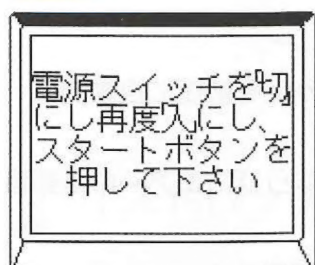 電源スイッチを「切」
にし再度「入」にし、
スタートボタンを
押して下さい